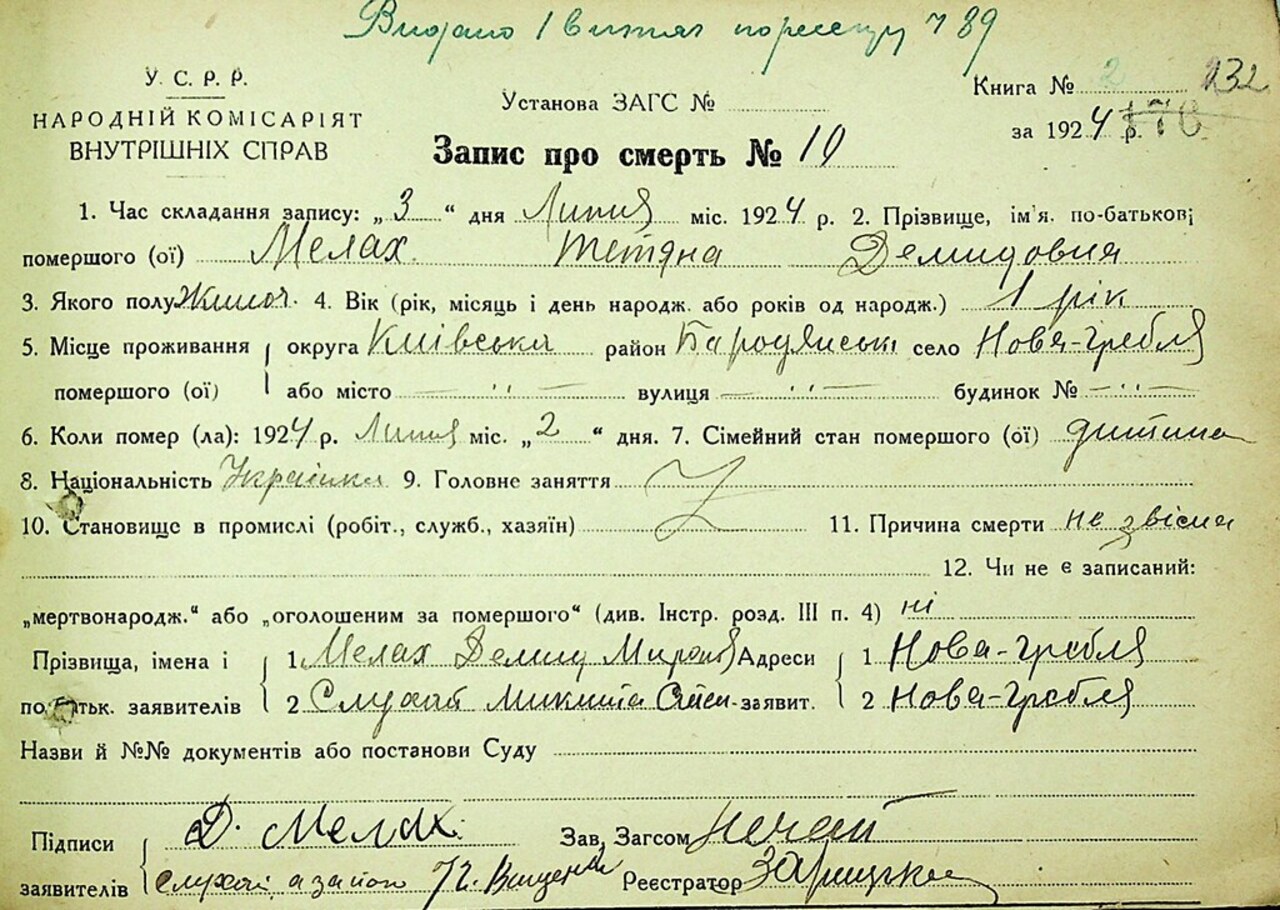 Видано 1 витяг по реєстру № 89
У. С. Р. Р.
НАРОДНІЙ КОМІСАРІЯТ
ВНУТРІШНІХ СПРАВ
Установа ЗАГС №
Книга № 2 132
за 1924 р. 176
Запис про смерть № 10
1. Час складання запису: „3“ дня Липня міс. 1924 р. 2. Прізвище, ім'я, по-батькові
помершого (ої) Мелах Тетяна Демидовна
3. Якого полу Жиноч. 4. Вік (рік, місяць і день народж. або років од народж.) 1 рік
5. Місце проживання округа Київська район Бародянськ село Нова-Гребля
помершого (ої) або місто — " — вулиця — " — будинок № — " —
6. Коли помер (ла): 1924 р. Липня міс. „2“ дня. 7. Сімейний стан помершого (ої) дитина
8. Національність Українка 9. Головне заняття
10. Становище в промислі (робіт., служб., хазяїн) 11. Причина смерти не звісна
12. Чи не є записаний:
„мертвонародж.“ або „оголошеним за помершого“ (див. Інстр. розд. III п. 4) ні
Прізвища, імена і 1 Мелах Демид Миронів Адреси 1 Нова-Гребля
по батьк. заявителів 2 Слухай Микита -заявит. 2 Нова-Гребля
Назви й №№ документів або постанови Суду
Підписи Д. Мелах. Зав. Загсом Нечай
заявителів Слухай а за його Реєстратор Зарицька